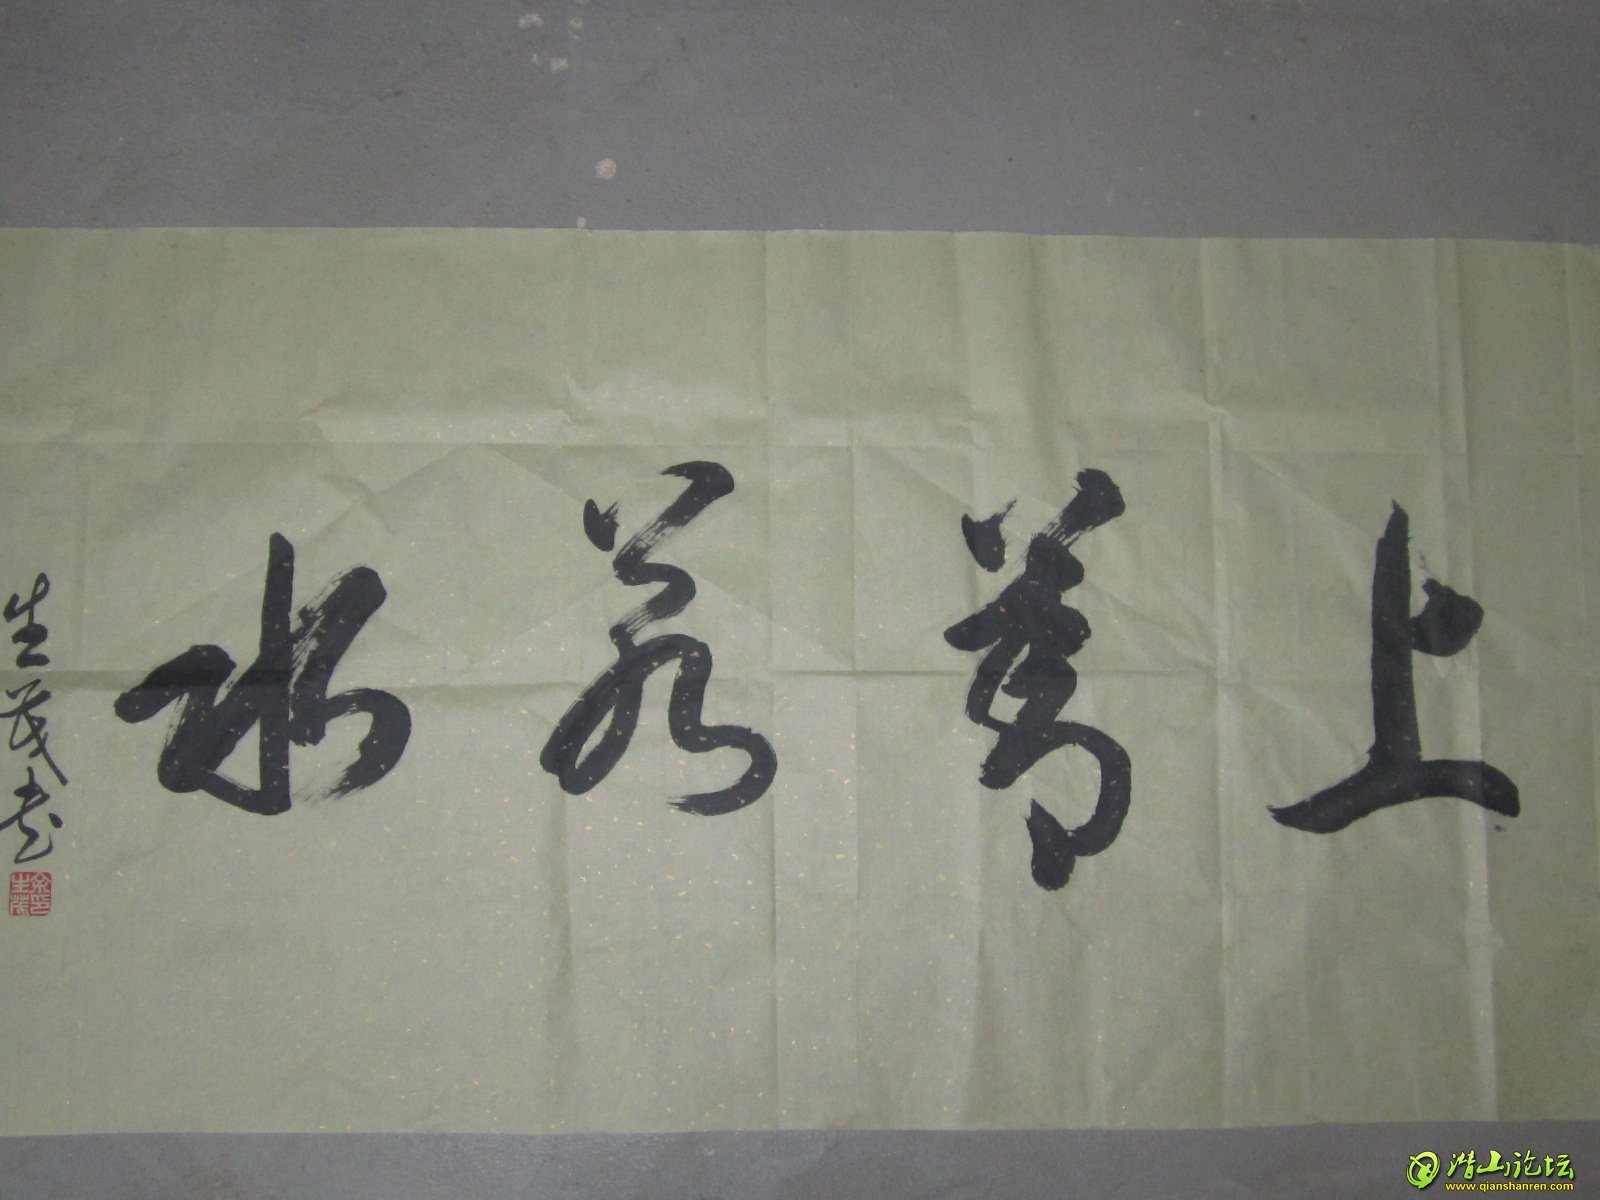 上善若水
生茂书
余生茂印
潜山论坛
www.qianshanren.com